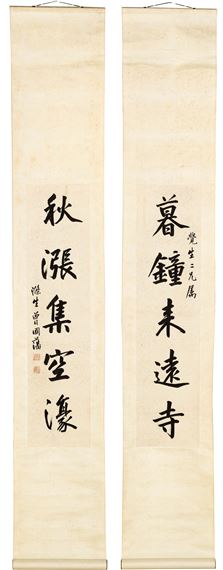 暮鐘来遠寺
覺生二兄属
秋漲集空濠
滌生曾國藩